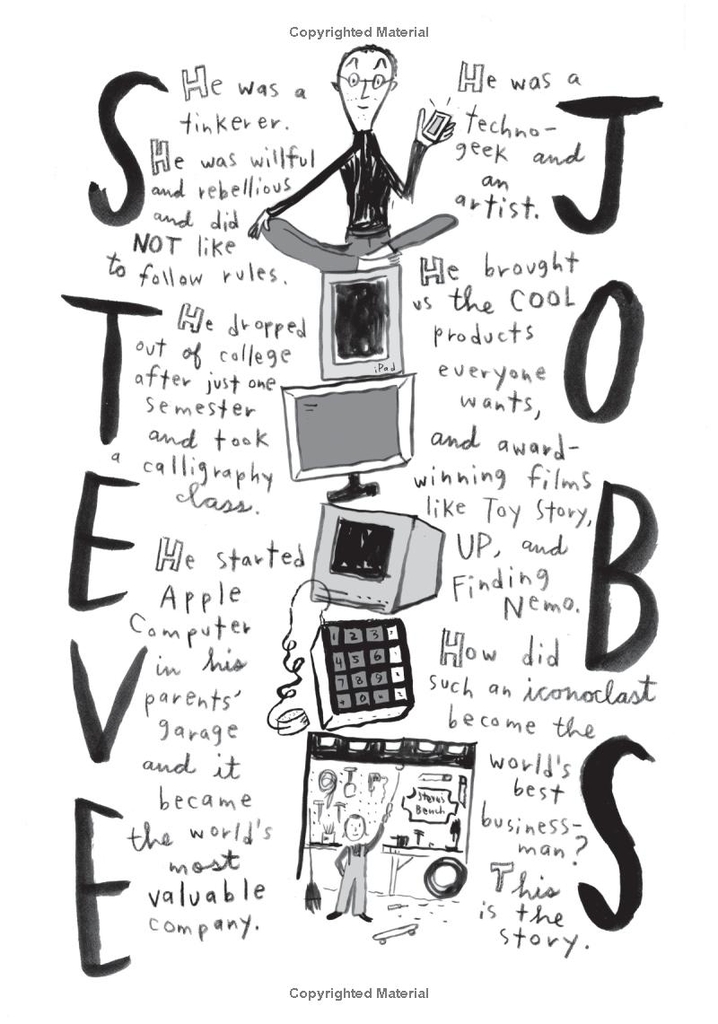 Copyrighted Material
STEVE
JOBS
He was a
tinkerer.
He was willful
and rebellious
and did
NOT like
to follow rules.
He dropped
out of college
after just one
semester
and took
a calligraphy
class.
He started
Apple
Computer
in his
parents'
garage
and it
became
the world's
most
valuable
company.
He was a
techno-
geek and
an
artist.
He brought
us the COOL
products
everyone
wants,
and award-
winning films
like Toy Story,
UP, and
Finding
Nemo.
How did
such an iconoclast
become the
world's
best
business-
man?
This
is the
story.
iPad
1 2 3
4 5 6
7 8 9
Steve's
Bench
Copyrighted Material